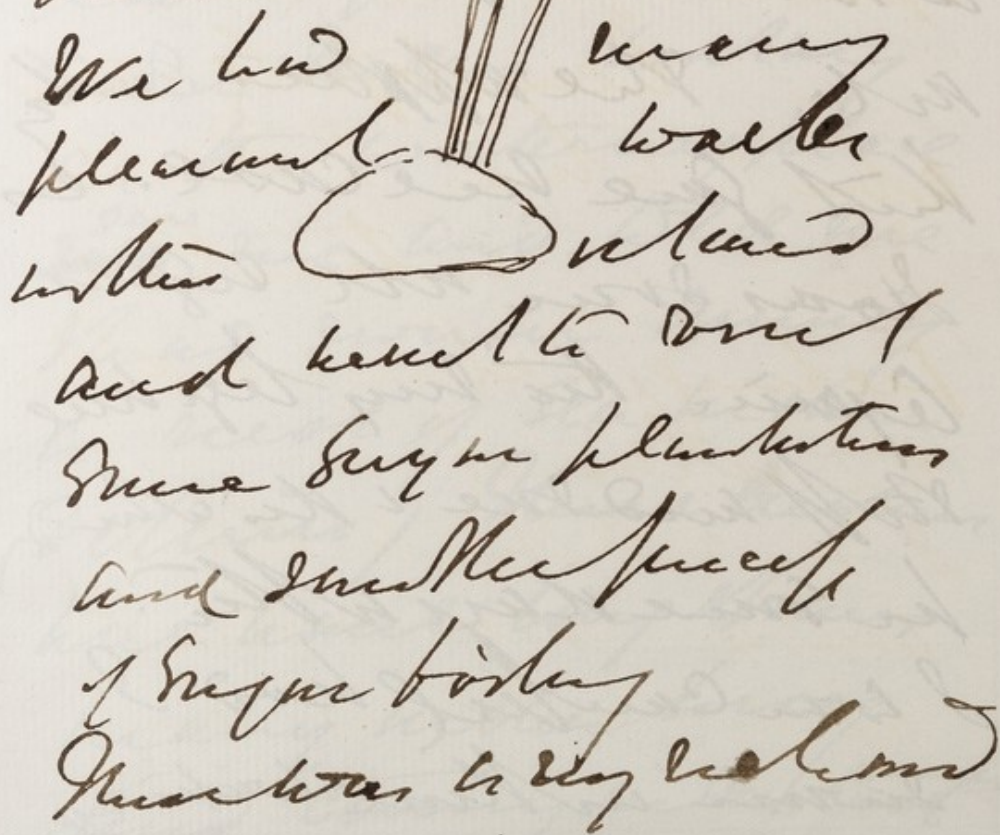 We had many
pleasant walks
on this island
and went to visit
some sugar plantations
and saw the process
of sugar boiling
There was a very